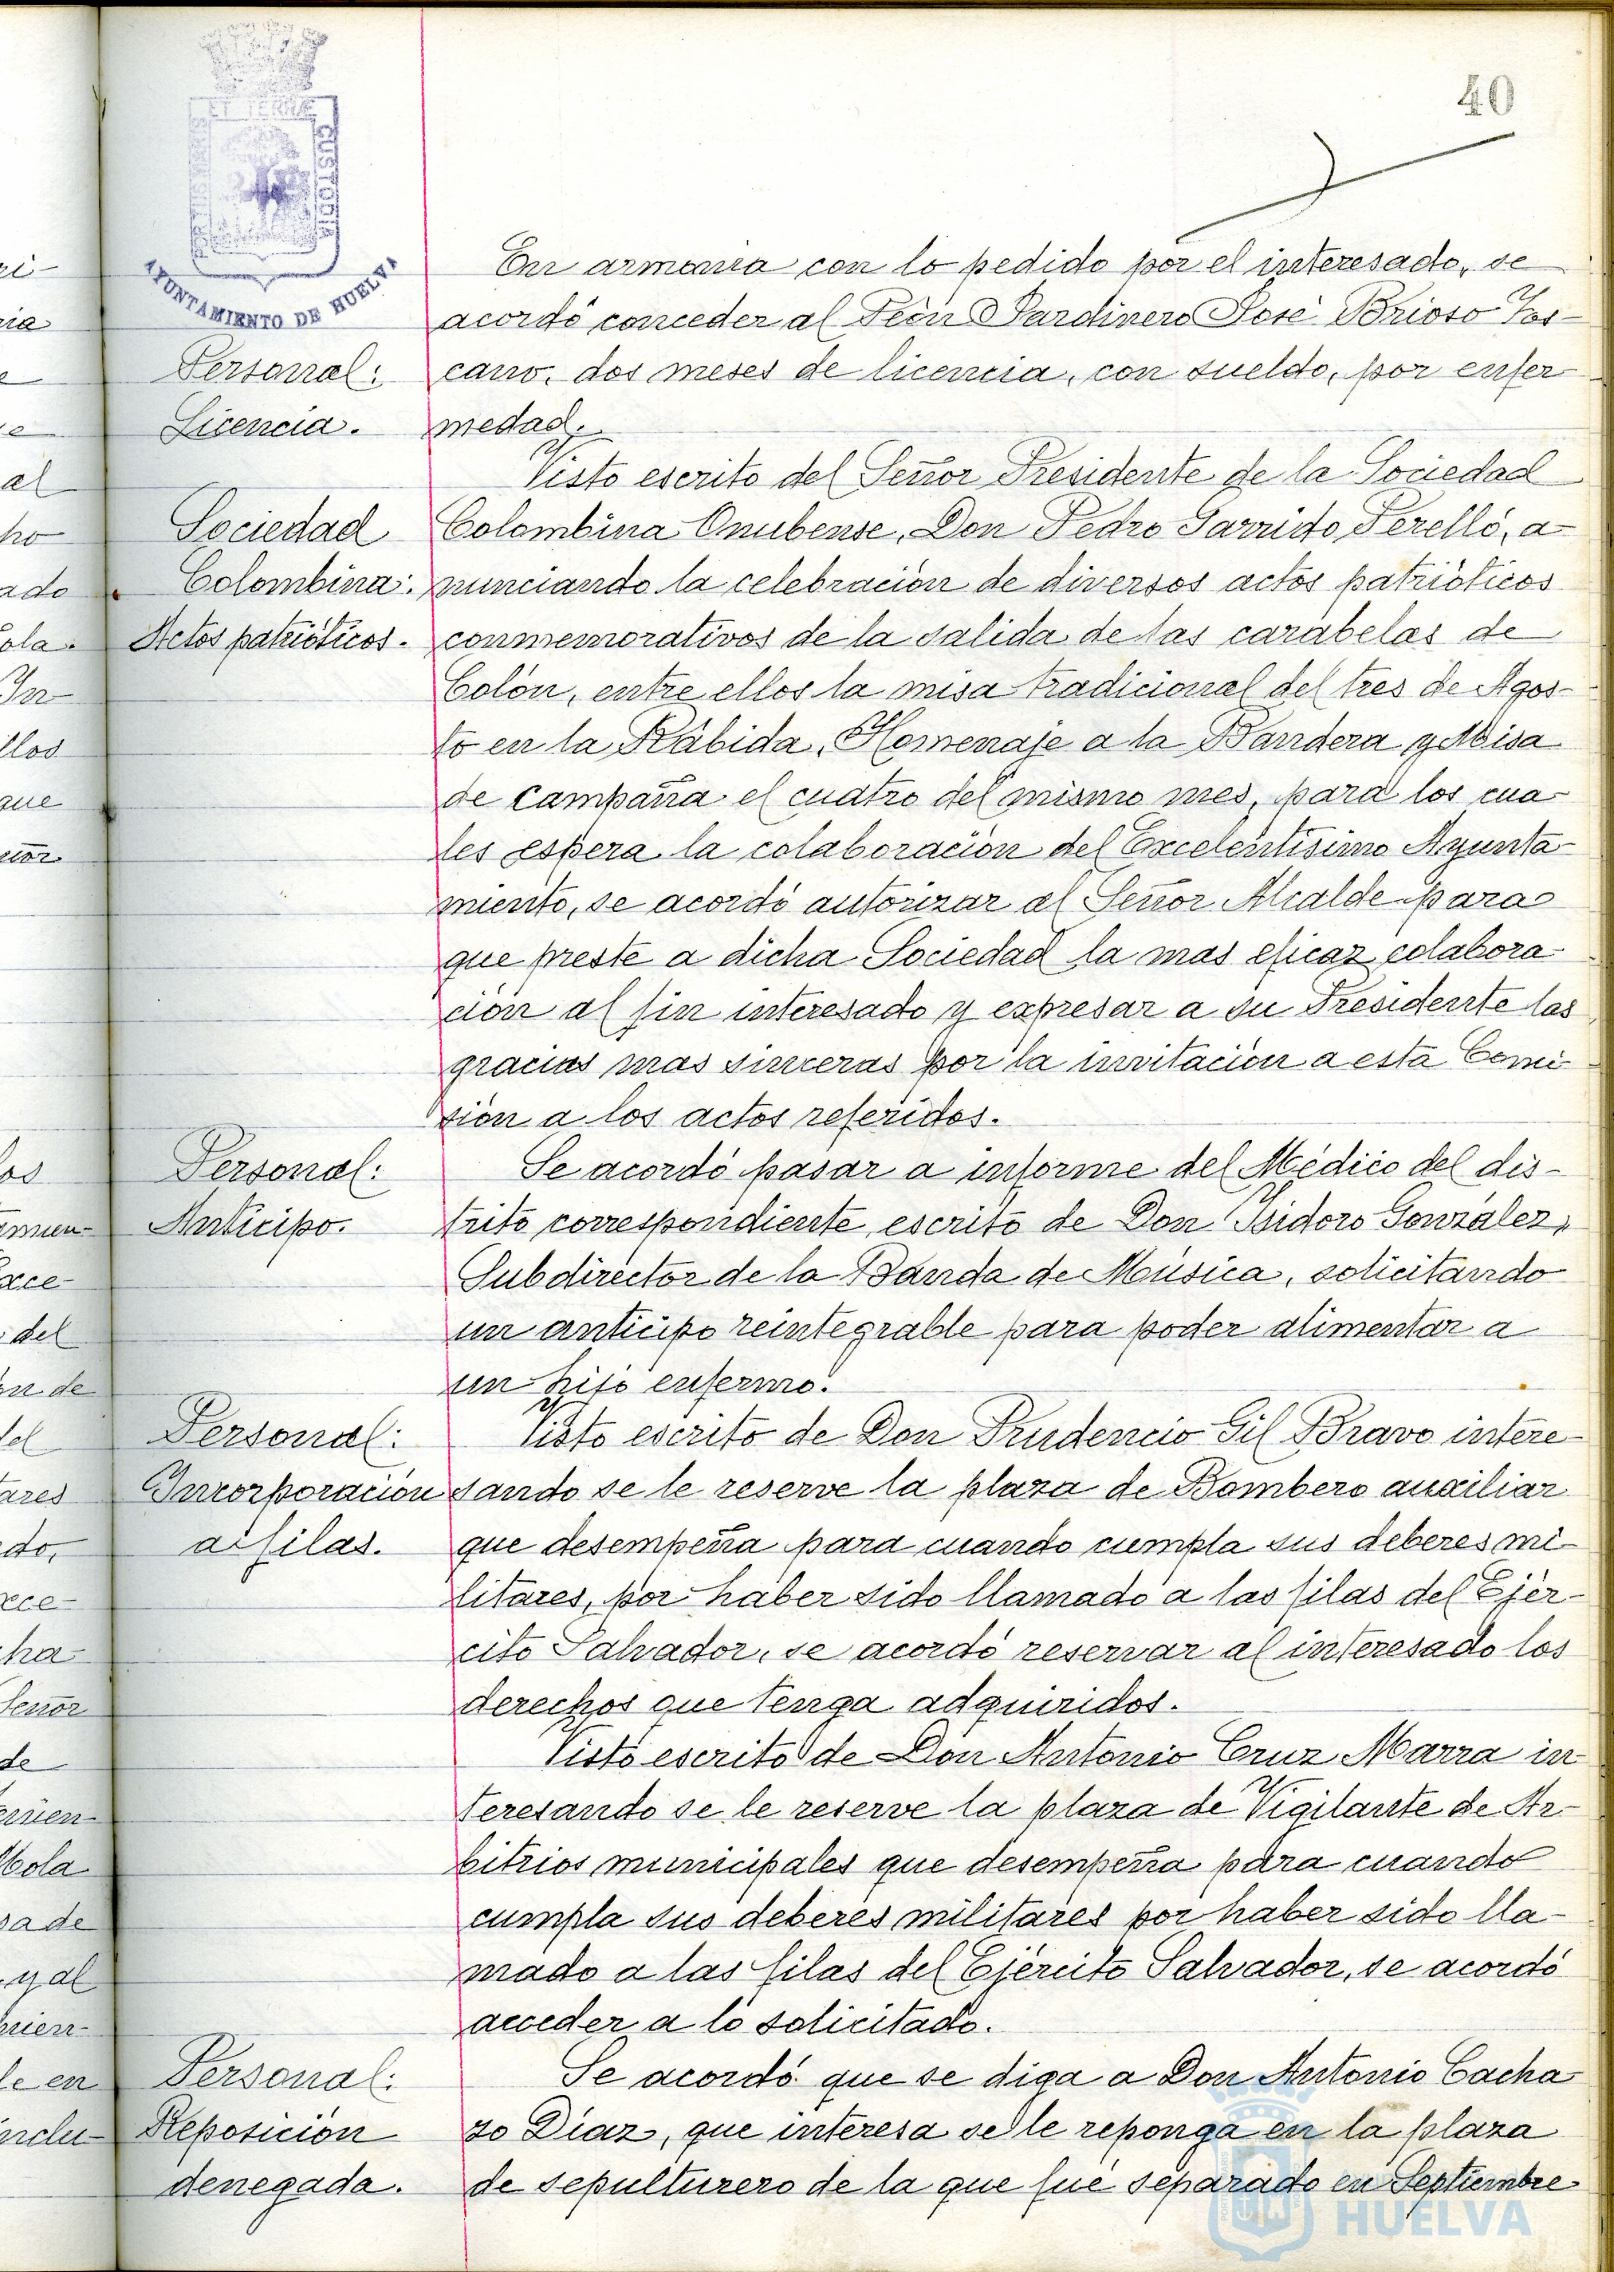 40
AYUNTAMIENTO DE HUELVA
CUSTODIA
Personal:
Licencia.
En armonia con lo pedido por el interesado, se
acordó conceder al Peón Jardinero José Brioso Tos-
cano, dos meses de licencia, con sueldo, por enfer
medad.
Sociedad
Colombina:
Actos patrióticos.
Visto escrito del Señor Presidente de la Sociedad
Colombina Onubense, Don Pedro Garrido Perelló, a
nunciando la celebración de diversos actos patrióticos
conmemorativos de la salida de las carabelas de
Colón, entre ellos la misa tradicional del tres de Agos-
to en la Rábida, Homenaje a la Bandera y Misa
de campaña el cuatro del mismo mes, para los cua
les espera la colaboración del Excelentísimo Ayunta
miento, se acordó autorizar al Señor Alcalde para
que preste a dicha Sociedad la mas eficaz colabora
ción al fin interesado y expresar a su Presidente las
gracias mas sinceras por la invitación a esta Comi
sión a los actos referidos.
Personal:
Anticipo.
Se acordó pasar a informe del Médico del dis-
trito correspondiente, escrito de Don Isidoro González,
Subdirector de la Banda de Música, solicitando
un anticipo reintegrable para poder alimentar a
un hijo enfermo.
Personal:
Incorporación
a filas.
Visto escrito de Don Prudencio Gil Bravo intere
sando se le reserve la plaza de Bombero auxiliar
que desempeña para cuando cumpla sus deberes mi-
litares, por haber sido llamado a las filas del Ejér-
cito Salvador, se acordó reservar al interesado los
derechos que tenga adquiridos.
Visto escrito de Don Antonio Cruz Marra in
teresando se le reserve la plaza de Vigilante de Ar-
bitrios municipales que desempeña para cuando
cumpla sus deberes militares por haber sido lla-
mado a las filas del Ejército Salvador, se acordó
acceder a lo solicitado.
Personal:
Reposición
denegada.
Se acordó que se diga a Don Antonio Cacha
zo Díaz, que interesa se le reponga en la plaza
de sepulturero de la que fué separado en Septiembre
HUELVA